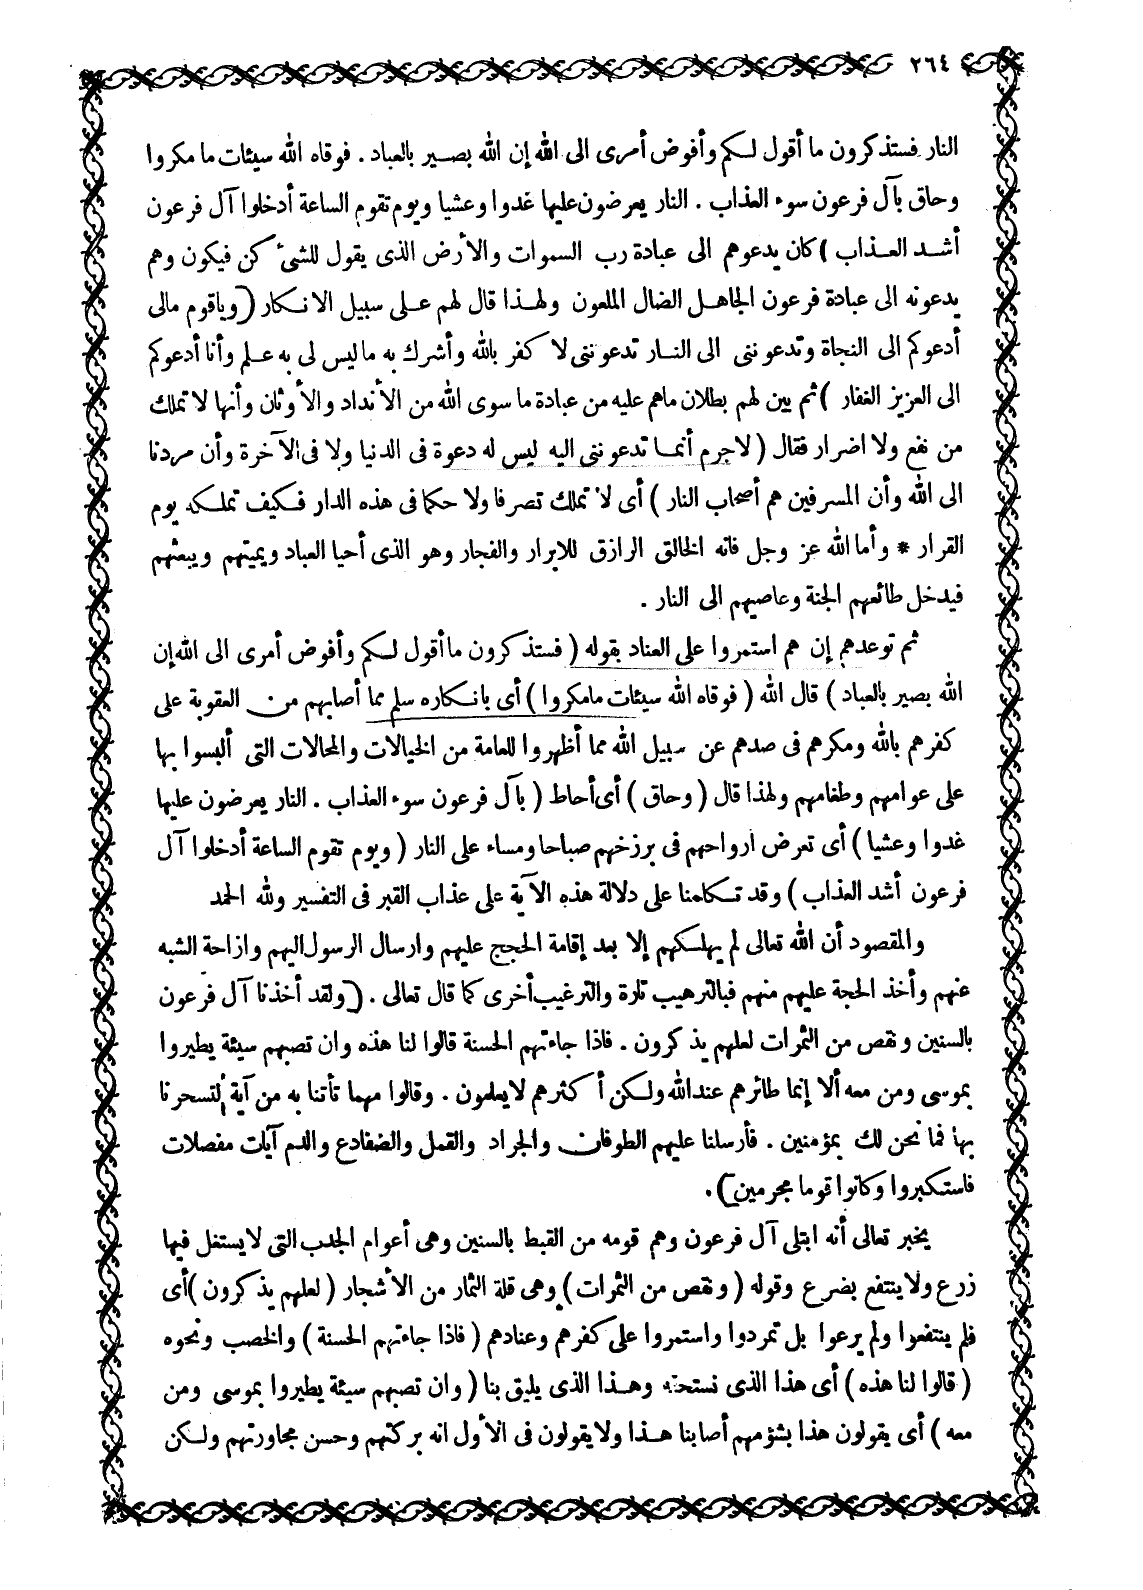 ٢٦٤
النار فستذكرون ما أقول لكم وأفوض أمرى الى الله إن الله بصير بالعباد . فوقاه الله سيئات ما مكروا
وحاق بآل فرعون سوء العذاب . النار يعرضون عليها غدوا وعشيا ويوم تقوم الساعة أدخلوا آل فرعون
أشد العذاب ) كان يدعوهم الى عبادة رب السموات والأرض الذى يقول للشىء كن فيكون وهم
يدعونه الى عبادة فرعون الجاهل الضال الملعون ولهذا قال لهم على سبيل الانكار ( وياقوم مالى
أدعوكم الى النجاة وتدعوننى الى النار تدعوننى لا كفر بالله وأشرك به ماليس لى به علم وأنا أدعوكم
الى العزيز الغفار ) ثم بين لهم بطلان ماهم عليه من عبادة ما سوى الله من الأنداد والأوثان وأنها لا تملك
من نفع ولا اضرار فقال ( لاجرم أنما تدعوننى اليه ليس له دعوة فى الدنيا ولا فى الآخرة وأن مردنا
الى الله وأن المسرفين هم أصحاب النار ) أى لا تملك تصرفا ولا حكما فى هذه الدار فكيف تملكه يوم
القرار * وأما الله عز وجل فانه الخالق الرازق للابرار والفجار وهو الذى أحيا العباد ويميتهم ويبعثهم
فيدخل طائعهم الجنة وعاصيهم الى النار .
ثم توعدهم إن هم استمروا على العناد بقوله ( فستذكرون ما أقول لكم وأفوض أمرى الى الله إن
الله بصير بالعباد ) قال الله ( فوقاه الله سيئات مامكروا ) أى بانكاره سلم مما أصابهم من العقوبة على
كفرهم بالله ومكرهم فى صدهم عن سبيل الله مما أظهروا للعامة من الخيالات والمحالات التى ألبسوا بها
على عوامهم وطغامهم ولهذا قال ( وحاق ) أى أحاط ( بآل فرعون سوء العذاب . النار يعرضون عليها
غدوا وعشيا ) أى تعرض أرواحهم فى برزخهم صباحا ومساء على النار ( ويوم تقوم الساعة أدخلوا آل
فرعون أشد العذاب ) وقد تكلمنا على دلالة هذه الآية على عذاب القبر فى التفسير ولله الحمد
والمقصود أن الله تعالى لم يهلكهم إلا بعد إقامة الحجج عليهم وارسال الرسول اليهم وازاحة الشبه
عنهم وأخذ الحجة عليهم منهم فبالترهيب تارة والترغيب أخرى كما قال تعالى . ( ولقد أخذنا آل فرعون
بالسنين ونقص من الثمرات لعلهم يذكرون . فاذا جاءتهم الحسنة قالوا لنا هذه وان تصبهم سيئة يطيروا
بموسى ومن معه ألا إنما طائرهم عند الله ولكن أكثرهم لايعلمون . وقالوا مهما تأتنا به من آية لتسحرنا
بها فما نحن لك بمؤمنين . فأرسلنا عليهم الطوفان والجراد والقمل والضفادع والدم آيات مفصلات
فاستكبروا وكانوا قوما مجرمين ) .
يخبر تعالى أنه ابتلى آل فرعون وهم قومه من القبط بالسنين وهى أعوام الجدب التى لايستغل فيها
زرع ولا ينتفع بضرع وقوله ( ونقص من الثمرات ) وهى قلة الثمار من الأشجار ( لعلهم يذكرون ) أى
فلم ينتفعوا ولم يرعوا بل تمردوا واستمروا على كفرهم وعنادهم ( فاذا جاءتهم الحسنة ) والخصب ونحوه
( قالوا لنا هذه ) أى هذا الذى نستحقه وهذا الذى يليق بنا ( وان تصبهم سيئة يطيروا بموسى ومن
معه ) أى يقولون هذا بشؤمهم أصابنا هذا ولا يقولون فى الأول انه بركتهم وحسن مجاورتهم ولكن